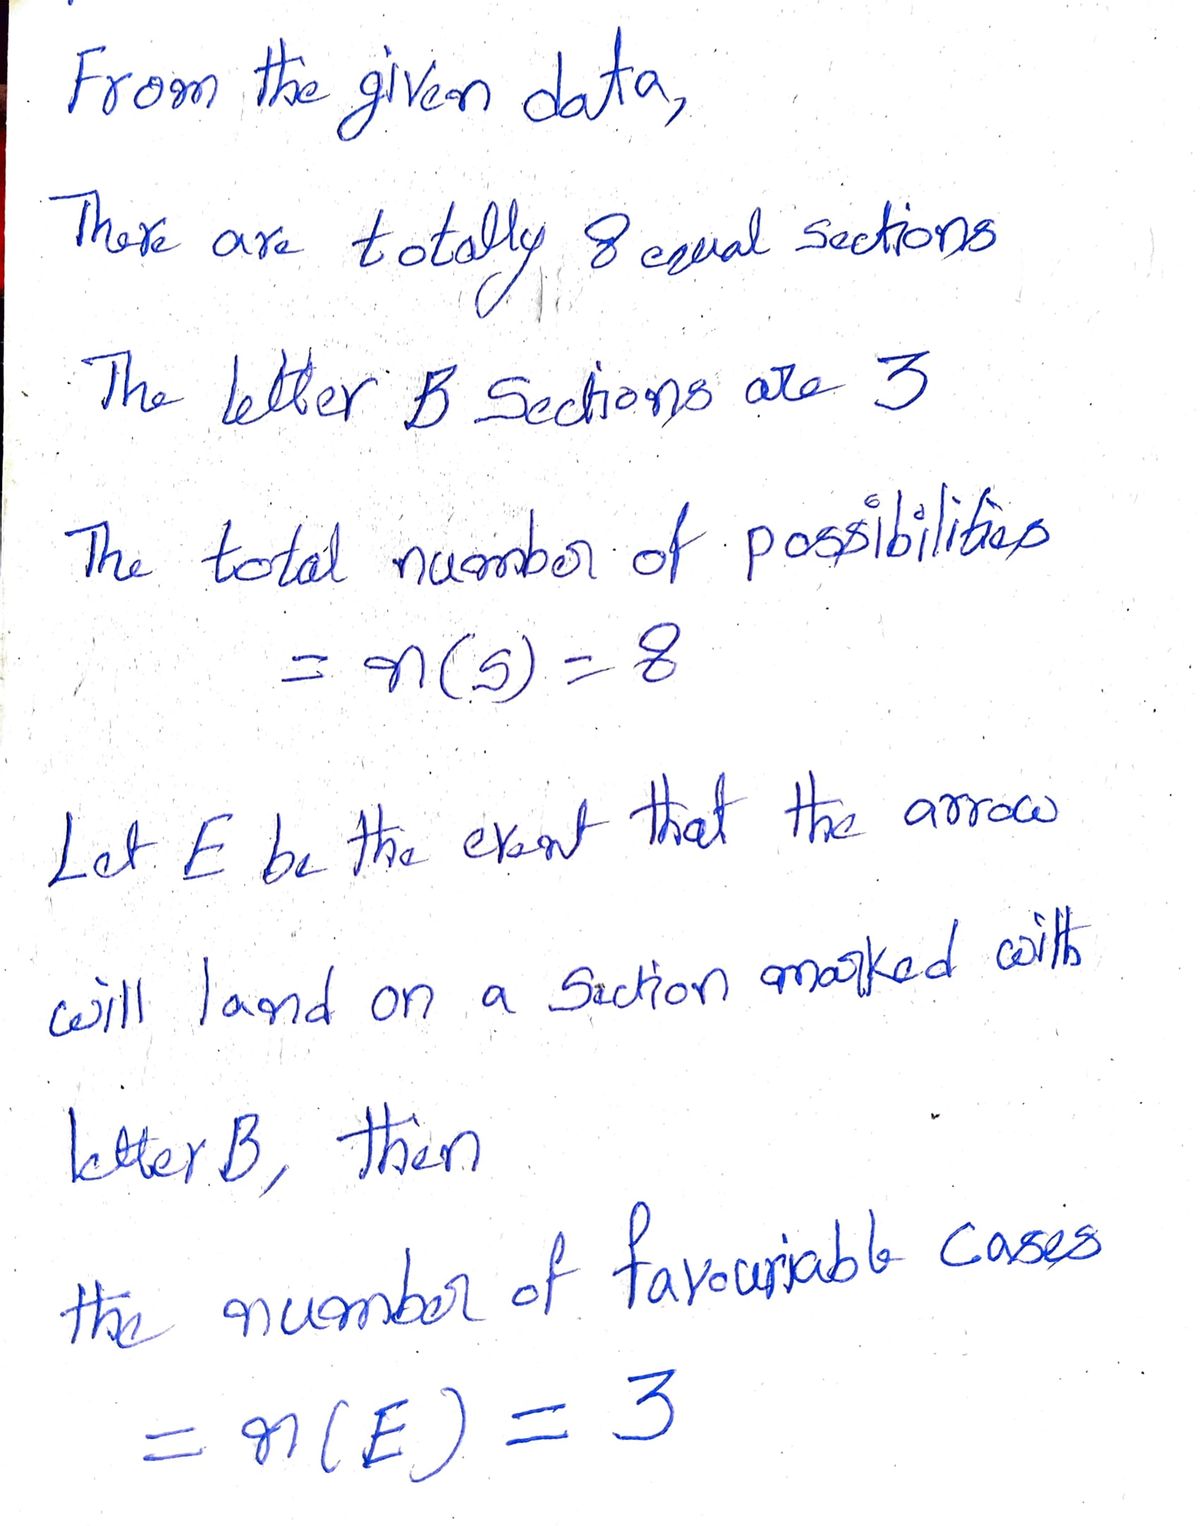 From the given data,
There are totally 8 equal sections
The letter B Sections are 3
The total number of possibilities
= n(S) = 8
Let E be the event that the arrow
will land on a Section marked with
letter B, then
the number of favouriable cases
= n(E) = 3